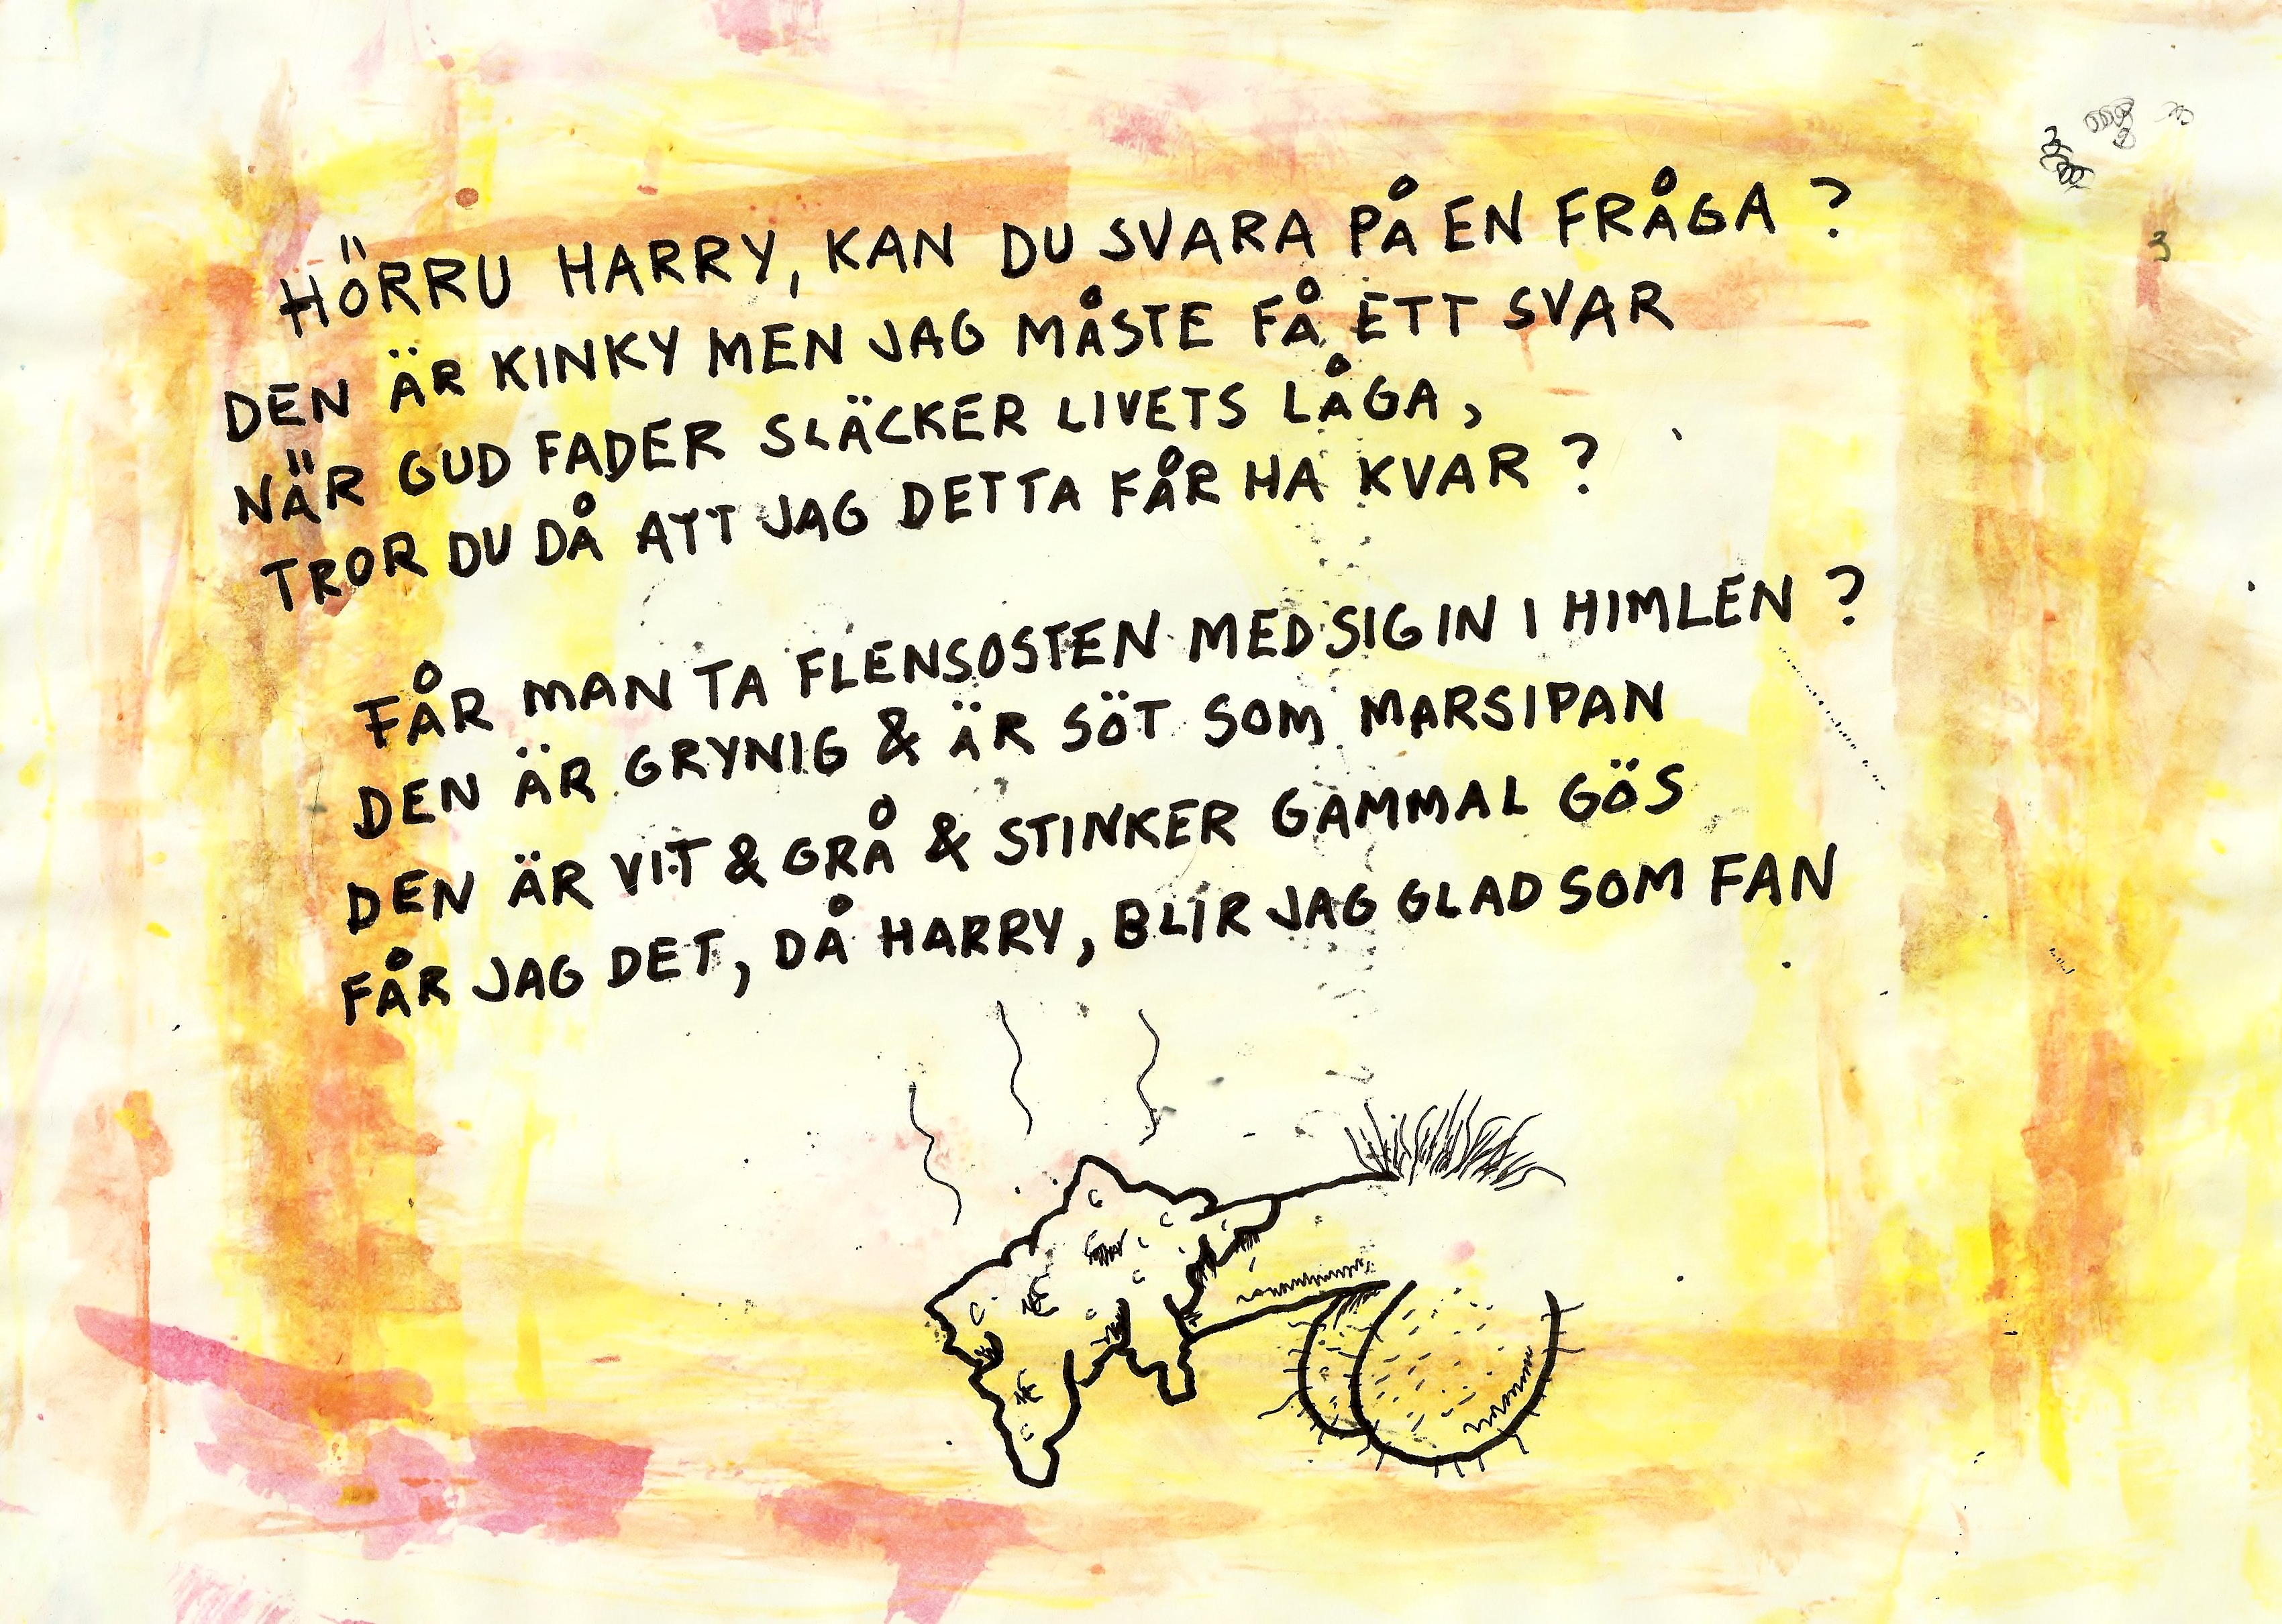 HÖRRU HARRY, KAN DU SVARA PÅ EN FRÅGA ?
DEN ÄR KINKY MEN JAG MÅSTE FÅ ETT SVAR
NÄR GUD FADER SLÄCKER LIVETS LÅGA,
TROR DU DÅ ATT JAG DETTA FÅR HA KVAR ?
FÅR MAN TA FLENSOSTEN MED SIG IN I HIMLEN ?
DEN ÄR GRYNIG & ÄR SÖT SOM MARSIPAN
DEN ÄR VIT & GRÅ & STINKER GAMMAL GÖS
FÅR JAG DET, DÅ HARRY, BLIR JAG GLAD SOM FAN